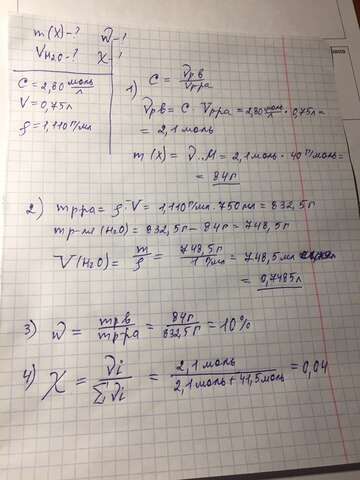 m(X)-? ω-?
V H2O-? χ-?
C=2,80 моль/л
V=0,75л
ρ=1,110 г/мл
1) C = νр.в / Vр-ра
νр.в= C · Vр-ра =2,80 моль/л · 0,75л =
= 2,1 моль
m (X) = ν · M = 2,1 моль · 40 г/моль=
= 84г
2) mр-ра= ρ·V = 1,110 г/мл · 750 мл = 832,5г
mр-ля (H2O) = 832,5г - 84г = 748,5г
V(H2O)= m/ρ = 748,5г / 1 г/мл = 748,5мл
= 0,7485л
3) ω = mр.в / mр-ра = 84г / 832,5г = 10%
4) χ = νi / Σνi = 2,1 моль / 2,1 моль + 41,5 моль = 0,04